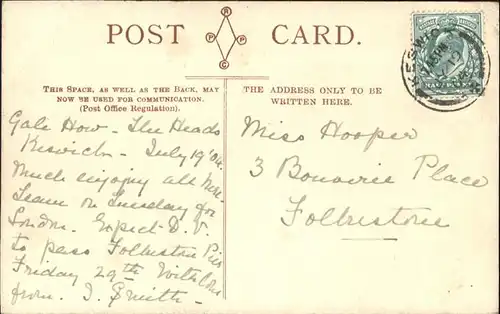 POST CARD.
R
P P
C
THIS SPACE, AS WELL AS THE BACK, MAY
NOW BE USED FOR COMMUNICATION.
(Post Office Regulation).
THE ADDRESS ONLY TO BE
WRITTEN HERE.
Gale How - The Heads
Keswick - July 19 '04
Much enjoying all here -
Leave on Tuesday for
London. Expect D.V.
to pass Folkestone Pier
Friday 29th With love
from J. Smith -
Miss Hooper
3 Bouverie Place
Folkestone
KESWICK
HALFPENNY